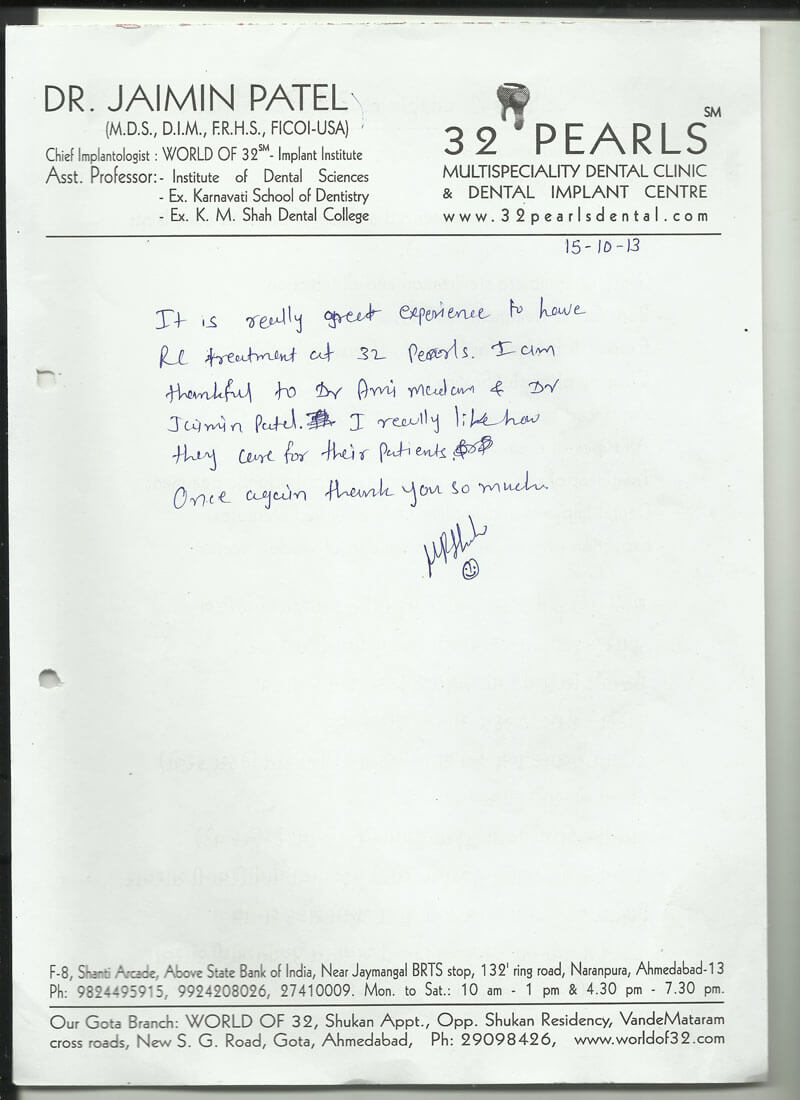 DR. JAIMIN PATEL
(M.D.S., D.I.M., F.R.H.S., FICOI-USA)
Chief Implantologist : WORLD OF 32SM- Implant Institute
Asst. Professor:- Institute of Dental Sciences
- Ex. Karnavati School of Dentistry
- Ex. K. M. Shah Dental College
32 PEARLS SM
MULTISPECIALITY DENTAL CLINIC
& DENTAL IMPLANT CENTRE
www.32pearlsdental.com
15-10-13
It is really great experience to have
RC treatment at 32 Pearls. I am
thankful to Dr Ami madam & Dr
Jaimin Patel. I really like how
they care for their patients.
Once again thank you so much.
F-8, Shanti Arcade, Above State Bank of India, Near Jaymangal BRTS stop, 132' ring road, Naranpura, Ahmedabad-13
Ph: 9824495915, 9924208026, 27410009. Mon. to Sat.: 10 am - 1 pm & 4.30 pm - 7.30 pm.
Our Gota Branch: WORLD OF 32, Shukan Appt., Opp. Shukan Residency, VandeMataram
cross roads, New S. G. Road, Gota, Ahmedabad, Ph: 29098426, www.worldof32.com